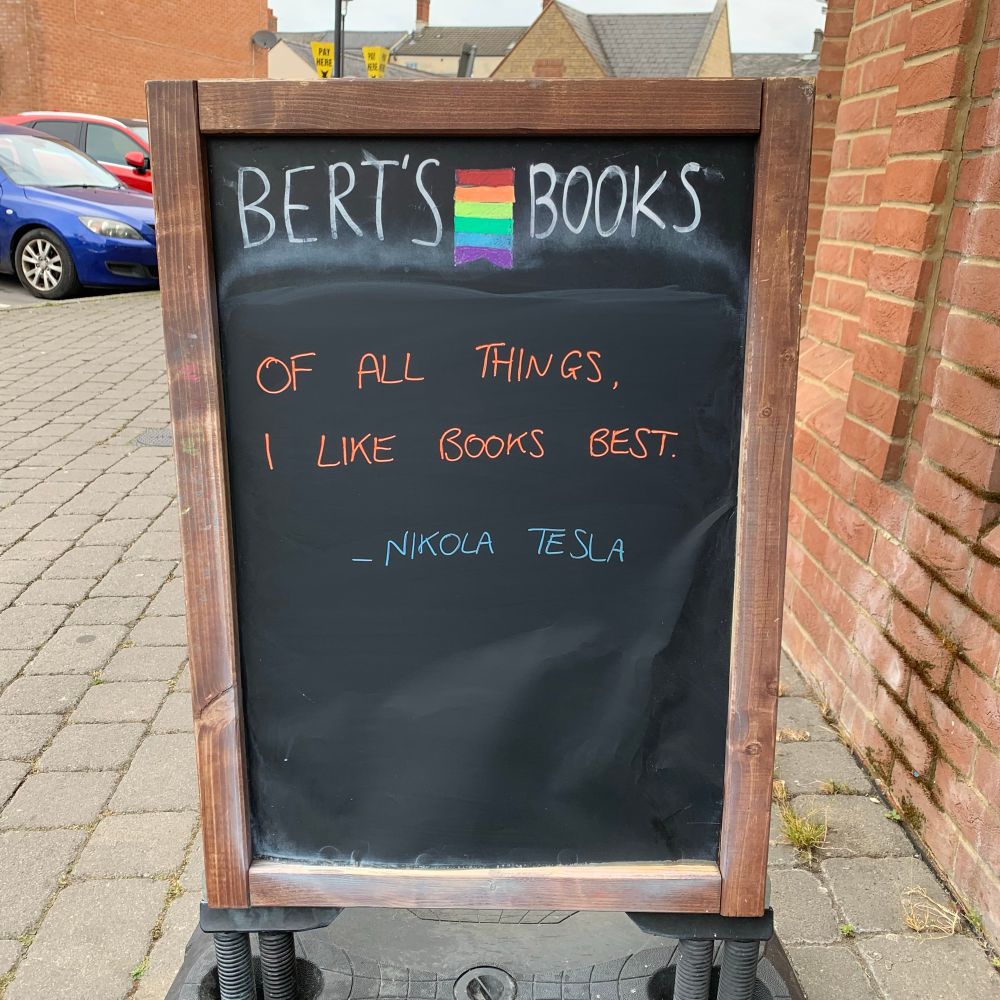 PAY
HERE
PAY
HERE
BERT'S BOOKS
OF ALL THINGS,
I LIKE BOOKS BEST.
- NIKOLA TESLA